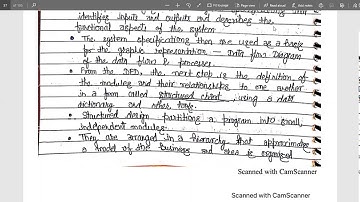 identifies inputs and outputs and describes the
functional aspects of the system
• The system specifications then are used as a basis
for the graphic representation - Data flow Diagram
of the data flow & processes.
• From the DFD, the next step is the definition of
the modules and their relationships to one another
in a form called structured chart, using a data
dictionary and other tools.
• Structured design, partitions a program into small,
independent modules.
• They are arranged in a hierarchy that approximates
a model of the business and also is organized
Scanned with CamScanner
Scanned with CamScanner